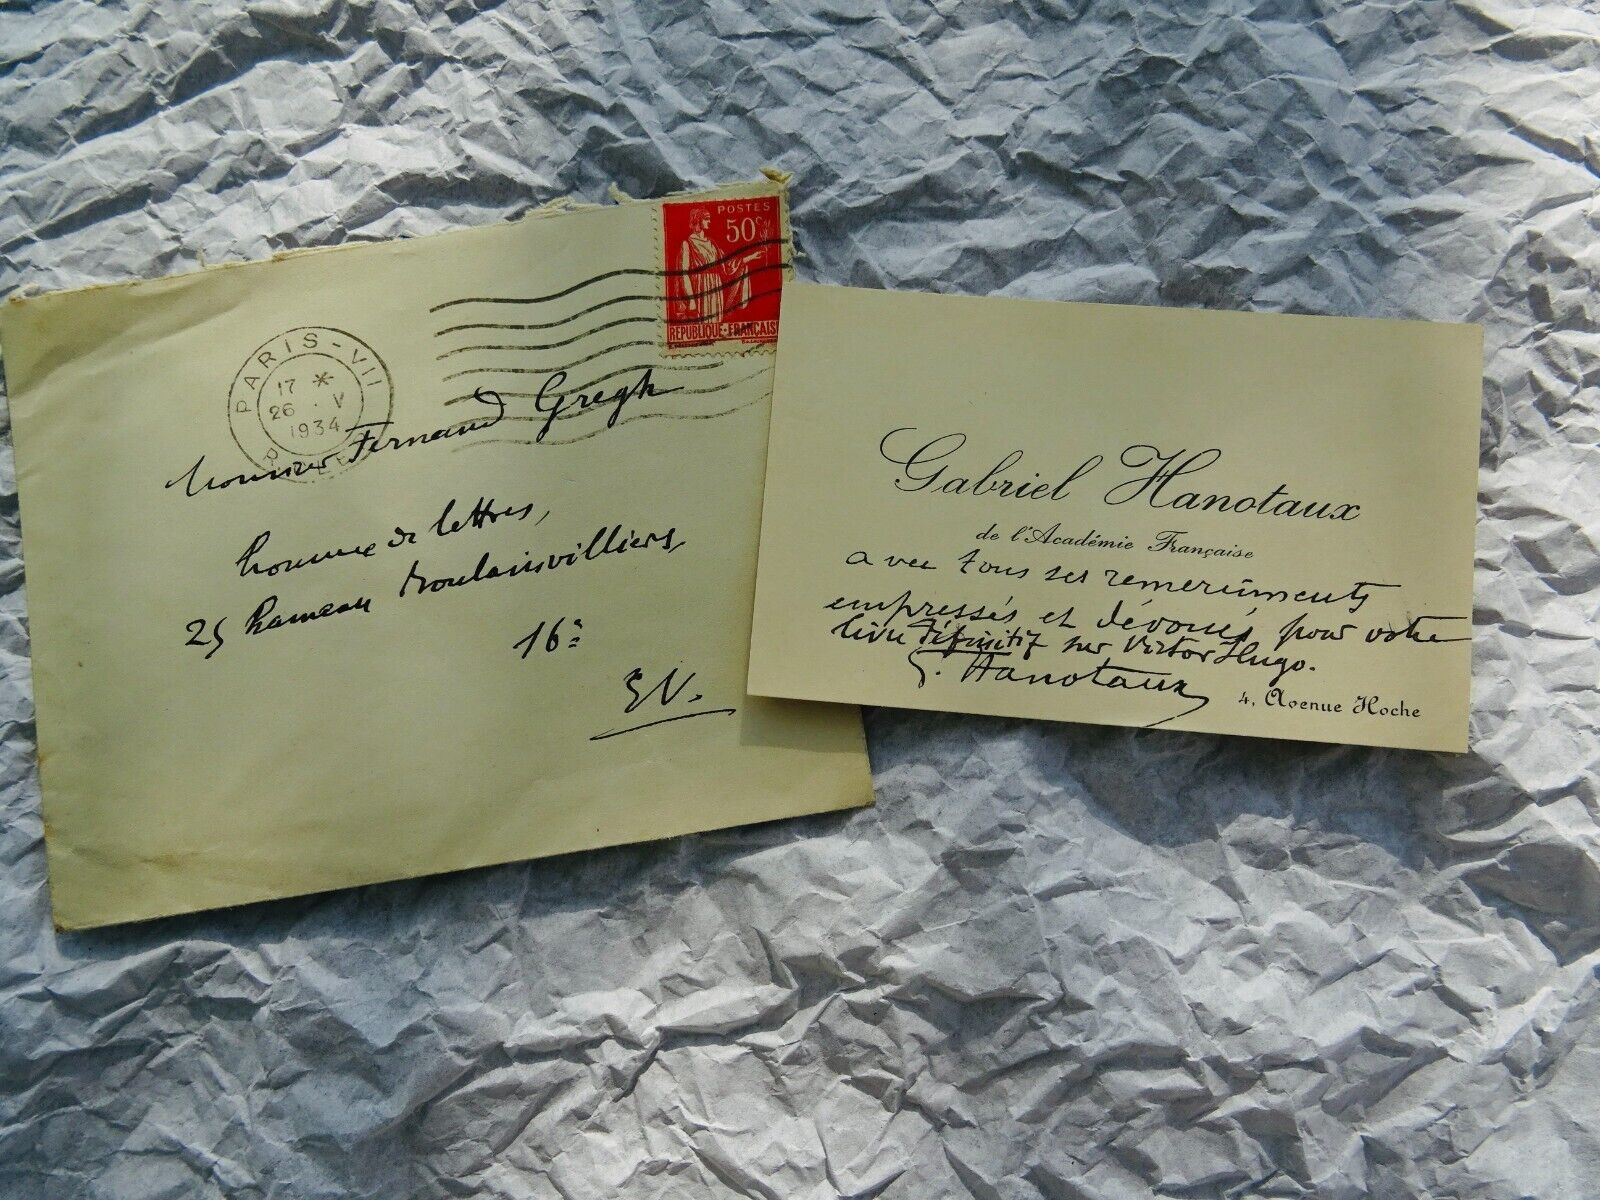 POSTES
50c
REPUBLIQUE-FRANÇAISE
PARIS-VII
17 *
26 · V
1934
Monsieur Fernand Gregh
homme de lettres,
25 hameau Boulainvilliers,
16e
E.V.
Gabriel Hanotaux
de l'Académie Française
avec tous ses remerciments
empressés et dévoués, pour votre
livre définitif sur Victor Hugo.
G. Hanotaux
4, Avenue Hoche